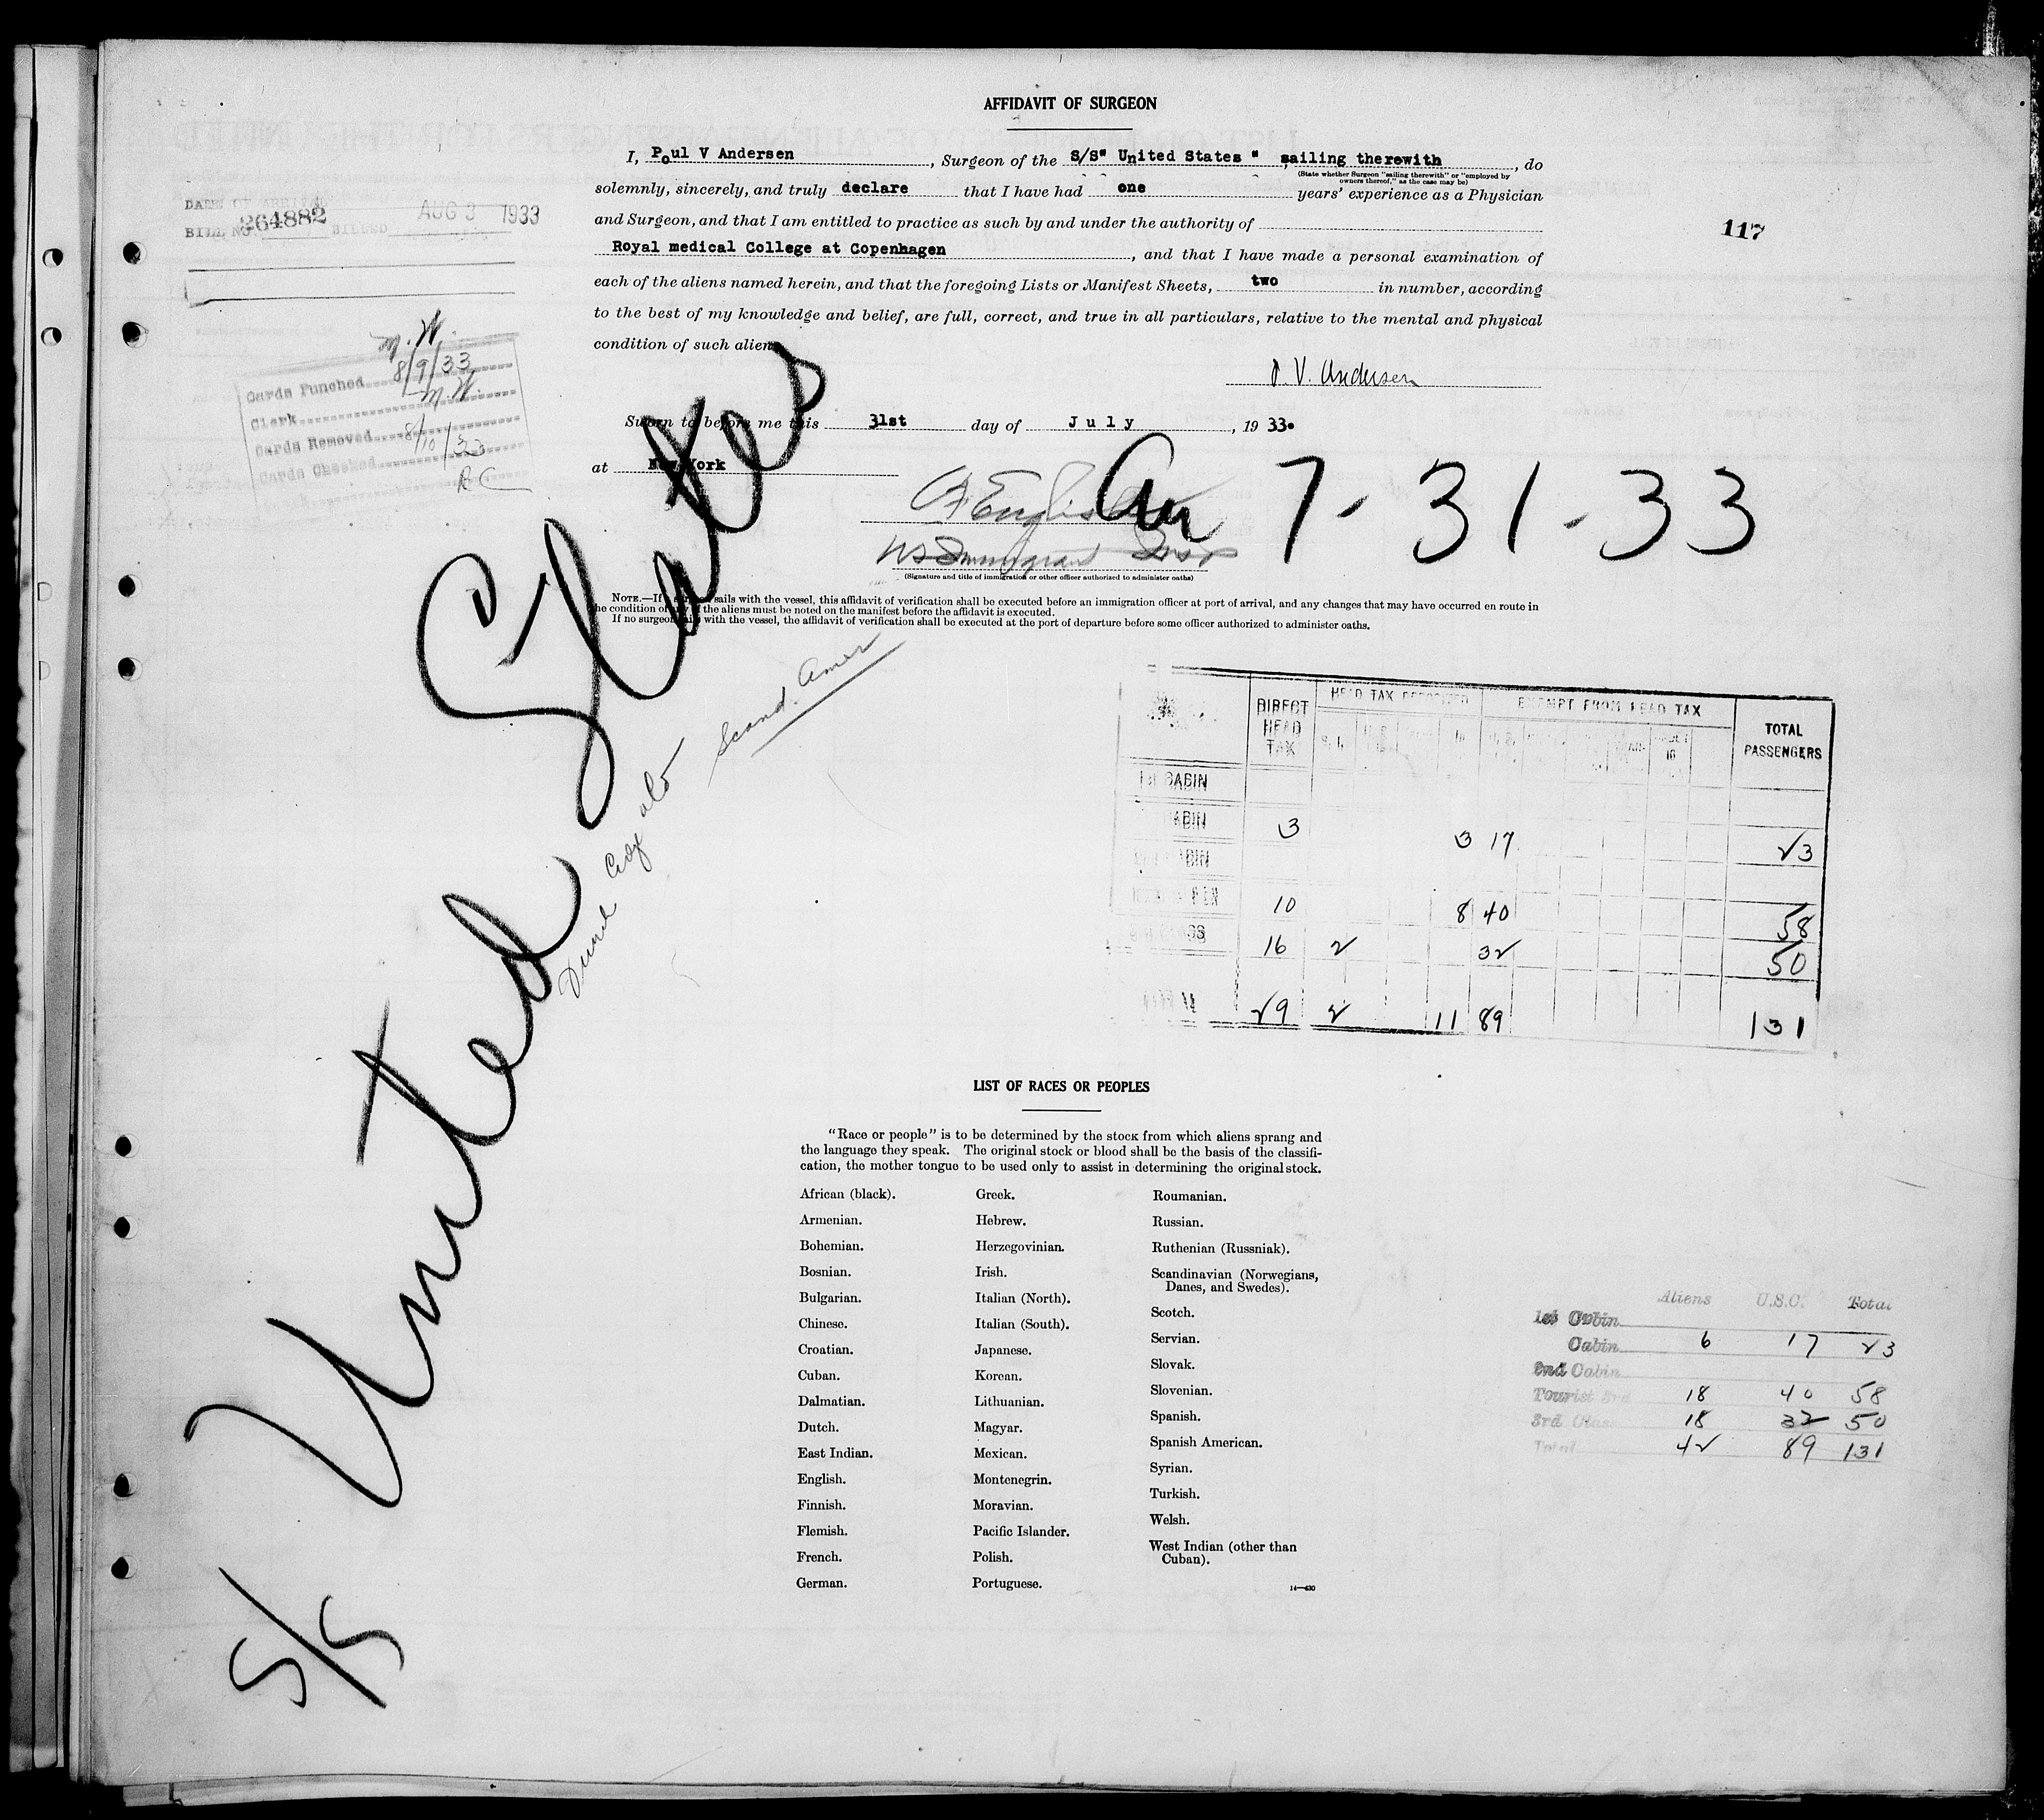 AFFIDAVIT OF SURGEON
I, Poul V Andersen, Surgeon of the S/S" United States ", sailing therewith, do
(State whether Surgeon "sailing therewith" or "employed by
owners thereof," as the case may be)
solemnly, sincerely, and truly declare that I have had one years' experience as a Physician
and Surgeon, and that I am entitled to practice as such by and under the authority of
Royal medical College at Copenhagen, and that I have made a personal examination of
each of the aliens named herein, and that the foregoing Lists or Manifest Sheets, two in number, according
to the best of my knowledge and belief, are full, correct, and true in all particulars, relative to the mental and physical
condition of such aliens
P. V. Andersen
Sworn to before me this 31st day of July, 19 33.
at New York
Arr 7-31-33
(Signature and title of immigration or other officer authorized to administer oaths)
NOTE.—If a surgeon sails with the vessel, this affidavit of verification shall be executed before an immigration officer at port of arrival, and any changes that may have occurred en route in
the condition of any of the aliens must be noted on the manifest before the affidavit is executed.
If no surgeon sails with the vessel, the affidavit of verification shall be executed at the port of departure before some officer authorized to administer oaths.
BILL NO 264882 BILLED AUG 3 1933
117
M.W.
Cards Punched 8/9/33
Clerk M.W.
Cards Removed 8/10/33
Cards Checked RC
S/S United States
Scand. Amer
DIRECT HEAD TAX
HEAD TAX DEPOSITED
EXEMPT FROM HEAD TAX
TOTAL PASSENGERS
1st CABIN
CABIN 3 3 17 23
10 8 40 58
16 2 32 50
29 2 11 89 131
LIST OF RACES OR PEOPLES
"Race or people" is to be determined by the stock from which aliens sprang and
the language they speak. The original stock or blood shall be the basis of the classifi-
cation, the mother tongue to be used only to assist in determining the original stock.
African (black).
Armenian.
Bohemian.
Bosnian.
Bulgarian.
Chinese.
Croatian.
Cuban.
Dalmatian.
Dutch.
East Indian.
English.
Finnish.
Flemish.
French.
German.
Greek.
Hebrew.
Herzegovinian.
Irish.
Italian (North).
Italian (South).
Japanese.
Korean.
Lithuanian.
Magyar.
Mexican.
Montenegrin.
Moravian.
Pacific Islander.
Polish.
Portuguese.
Roumanian.
Russian.
Ruthenian (Russniak).
Scandinavian (Norwegians,
Danes, and Swedes).
Scotch.
Servian.
Slovak.
Slovenian.
Spanish.
Spanish American.
Syrian.
Turkish.
Welsh.
West Indian (other than
Cuban).
14—430
Aliens U.S.C. Total
1st Cabin
Cabin 6 17 23
2nd Cabin
Tourist 3rd 18 40 58
3rd Class 18 32 50
Total 42 89 131